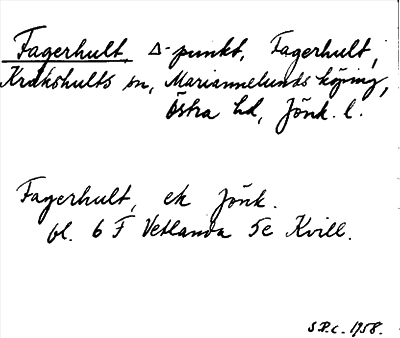 Fagerhult, Δ-punkt, Fagerhult,
Kråkshults sn, Mariannelunds köping,
Östra hd, Jönk. l.
Fagerhult, ek Jönk.
bl. 6 F Vetlanda 5e Kvill.
S.P.c. 1958.